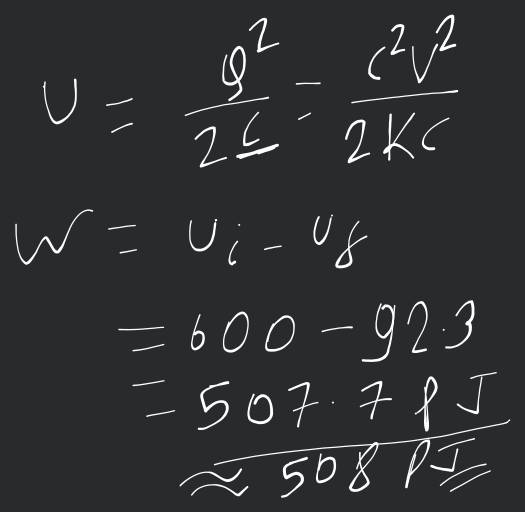 U = Q²/2C = C²V²/2KC
W = Ui - Uf
= 600 - 92.3
= 507.7 PJ
≈ 508 PJ